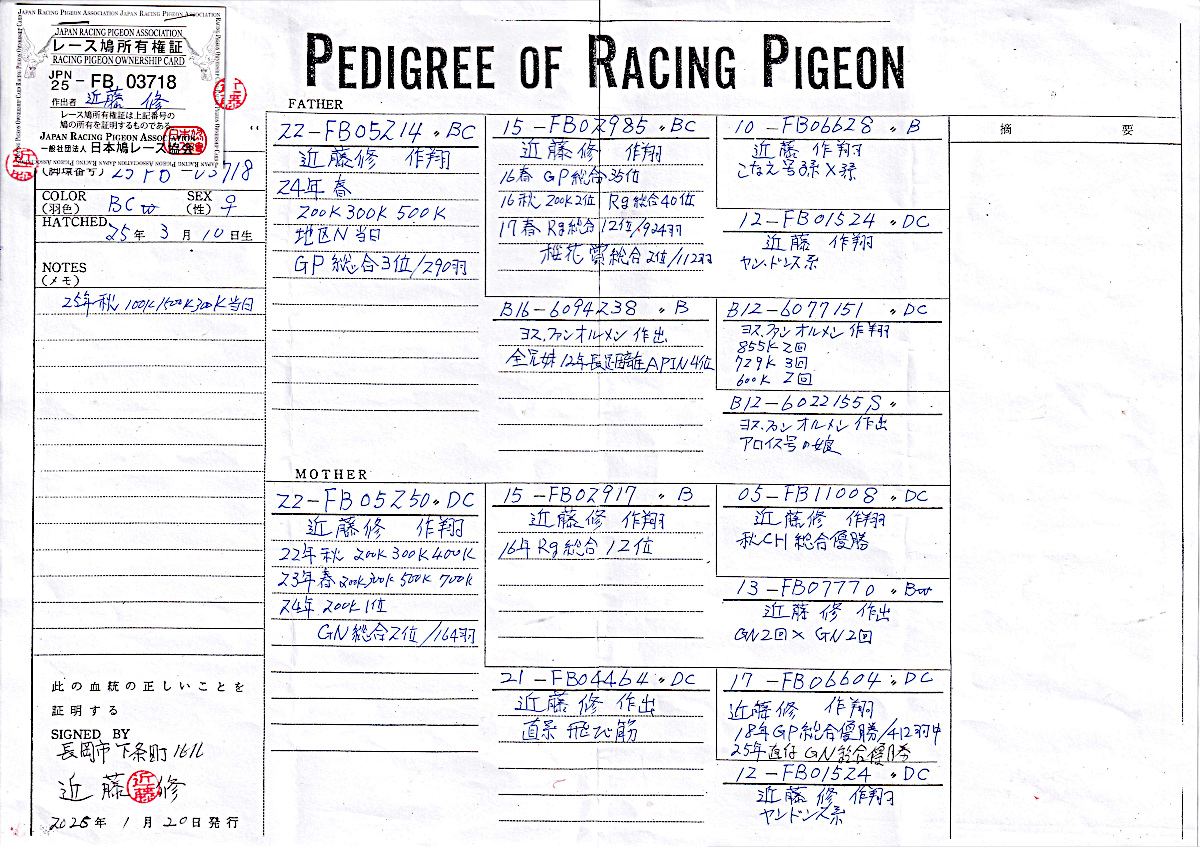 JAPAN RACING PIGEON ASSOCIATION
レース鳩所有権証
RACING PIGEON OWNERSHIP CARD
JPN 25 -FB 03718
作出者 近藤 修
レース鳩所有権証は上記番号の
鳩の所有を証明するものである
JAPAN RACING PIGEON ASSOCIATION
一般社団法人 日本鳩レース協会
PEDIGREE OF RACING PIGEON
(脚環番号) 25 FB -03718
COLOR (羽色) BCw SEX (性) ♀
HATCHED 25年 3月 10日生
NOTES
(メモ)
25年秋 100K 300K当日
此の血統の正しいことを
証明する
SIGNED BY
長岡市下条町1616
近藤 修
近藤
年 1月 20日発行
FATHER
22-FB05214 〃 BC
近藤修 作翔
24年春
200K 300K 500K
地区N 当日
GP総合3位/290羽
15-FB02985 〃 BC
近藤修 作翔
16春 GP総合35位
16秋 200K2位 Rg総合40位
17春 Rg総合12位/924羽
桜花賞総合2位/112羽
10-FB06628 〃 B
近藤 作翔
こなえ号3系×孫
12-FB01524 〃 DC
近藤 作翔
ヤンドンス系
B16-6094238 〃 B
ヨス.ファンオルメン 作出
全兄妹12年長距離APIN4位
B12-6077151 〃 DC
ヨス.ファン オルメン 作翔
855K 2回
729K 3回
600K 2回
B12-6022155 S 〃
ヨス.ファン オルメン 作出
アロイス号の娘
MOTHER
22-FB05250 〃 DC
近藤修 作翔
22年秋 200K 300K 400K
23年春 200K 300K 500K 700K
24年 200K 1位
GN総合2位/164羽
15-FB02917 〃 B
近藤修 作翔
16年Rg総合12位
05-FB11008 〃 DC
近藤修 作翔
秋CH総合優勝
13-FB07770 〃 Bw
近藤修 作出
GN2回×GN2回
21-FB04464 〃 DC
近藤修 作出
直系 飛び筋
17-FB06604 〃 DC
近藤修 作翔
18年GP総合優勝/412羽中
25年直仔 GN総合優勝
12-FB01524 〃 DC
近藤修 作翔
ヤンドンス系
摘 要